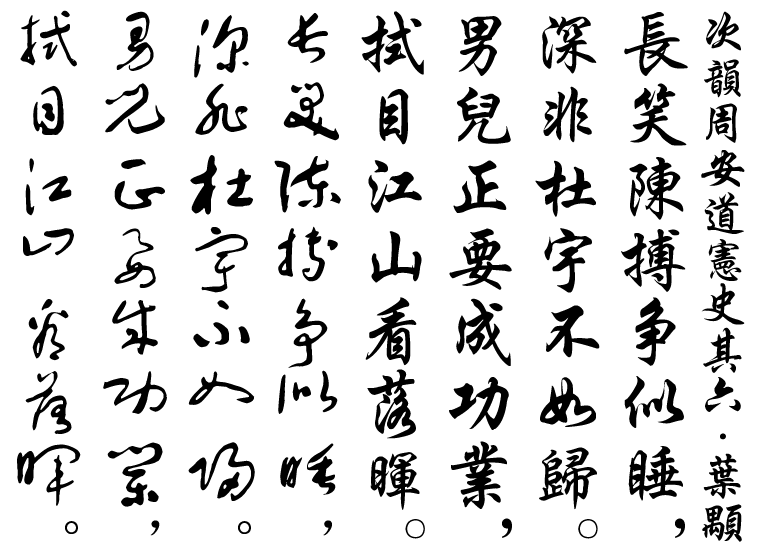 次韻周安道憲史其六·葉顒
長笑陳搏争似睡，
深非杜宇不如歸○
男兒正要成功業，
拭目江山看落暉○
长笑陈抟争似睡，
深非杜宇不如归。
男儿正要成功業，
拭目江山看落暉。